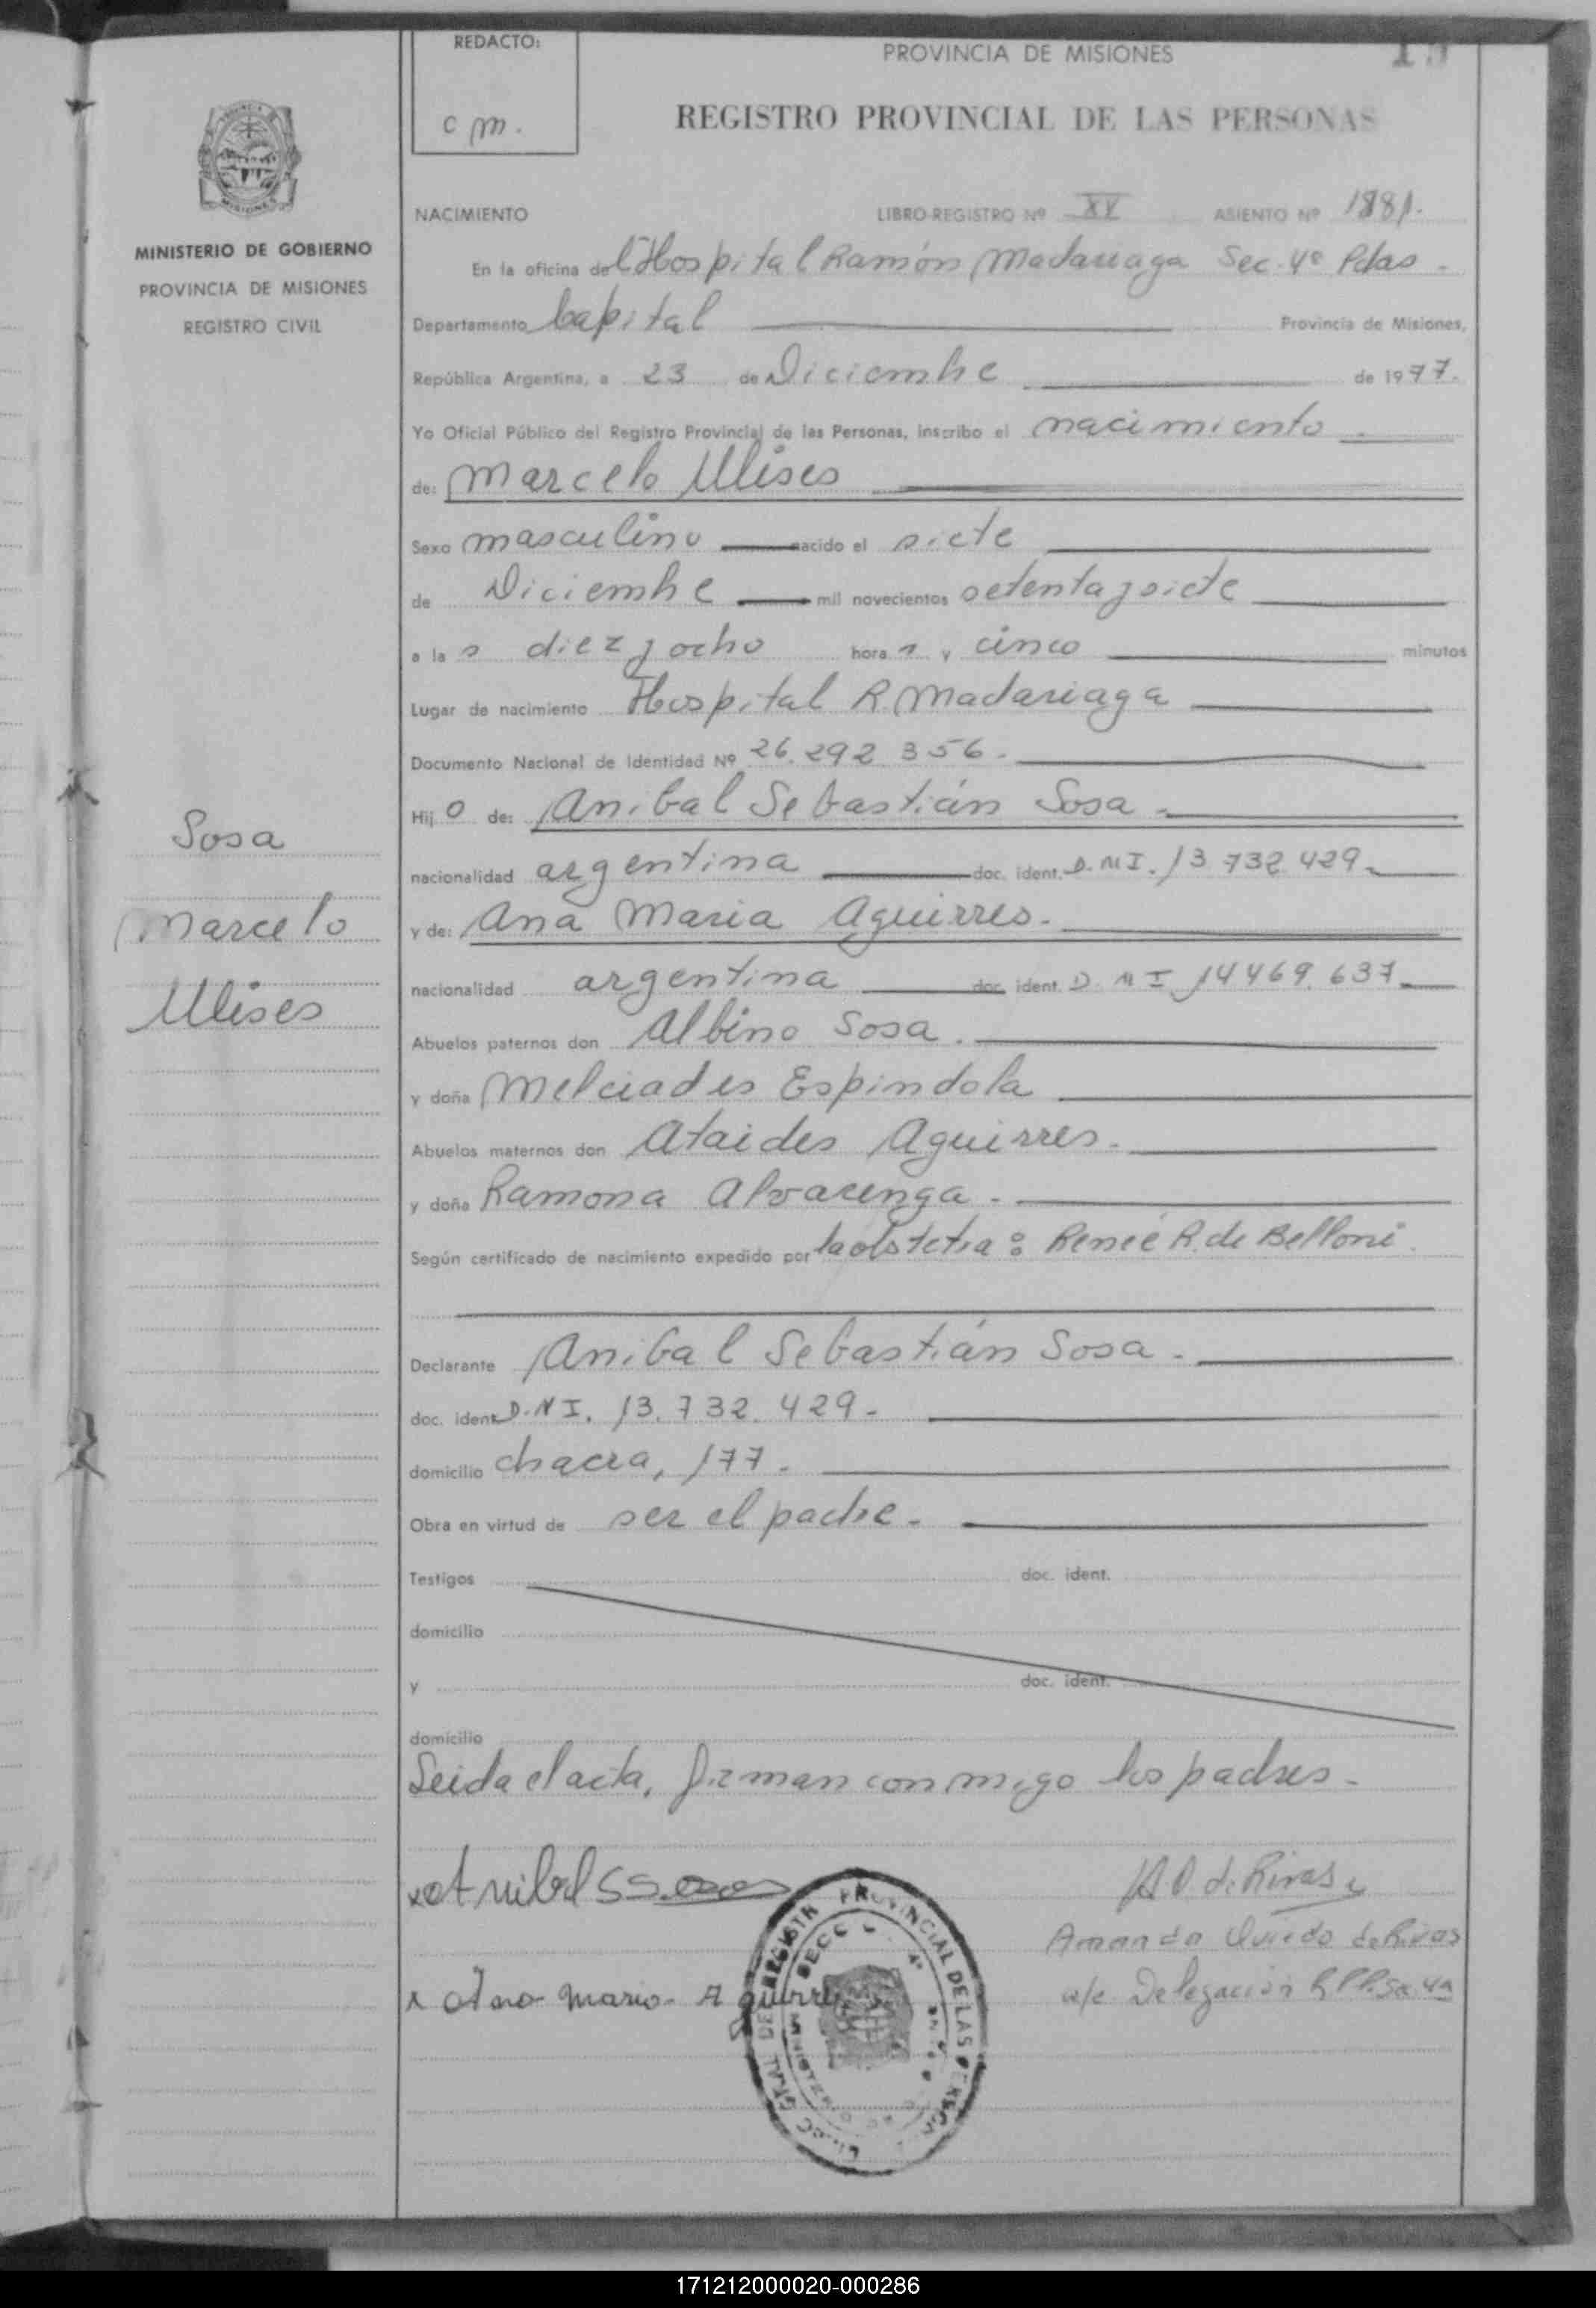 REDACTO:
c m.
PROVINCIA DE MISIONES
REGISTRO PROVINCIAL DE LAS PERSONAS
MINISTERIO DE GOBIERNO
PROVINCIA DE MISIONES
REGISTRO CIVIL
NACIMIENTO LIBRO-REGISTRO Nº XV ASIENTO Nº 1881.
En la oficina del Hospital Ramón Madariaga Sec. 4º Pdas.
Departamento Capital Provincia de Misiones,
República Argentina, a 23 de Diciembre de 1977.
Yo Oficial Público del Registro Provincial de las Personas, inscribo el nacimiento
de: Marcelo Ulises
Sexo masculino nacido el siete
de Diciembre mil novecientos setenta y siete
a las diez y ocho horas y cinco minutos
Lugar de nacimiento Hospital R. Madariaga
Documento Nacional de Identidad Nº 26.292.356.
Hijo de: Anibal Sebastián Sosa
nacionalidad argentina doc. ident. D.N.I. 13.732.429
y de: Ana Maria Aguirres.
nacionalidad argentina doc. ident. D.N.I. 14.469.637
Abuelos paternos don Albino Sosa.
y doña Melciades Espindola
Abuelos maternos don Ataides Aguirres.
y doña Ramona Alvarenga.
Según certificado de nacimiento expedido por la obstetra: Reneé R. de Belloni.
Declarante Anibal Sebastián Sosa.
doc. ident. D.N.I. 13.732.429.
domicilio chacra, 177.
Obra en virtud de ser el padre.
Testigos doc. ident.
domicilio
y doc. ident.
domicilio
Leida el acta, firman conmigo los padres.
Sosa
Marcelo
Ulises
x Anibal S Sosa
A O. de Rivas
Amanda Oviedo de Rivas
x Ana Maria Aguirre
a/c Delegación
PROVINCIAL DE LAS
171212000020-000286